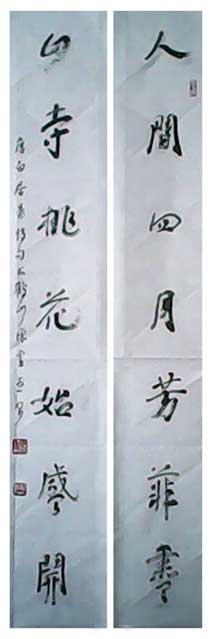 人間四月芳菲盡
山寺桃花始盛開
唐白居易詩句